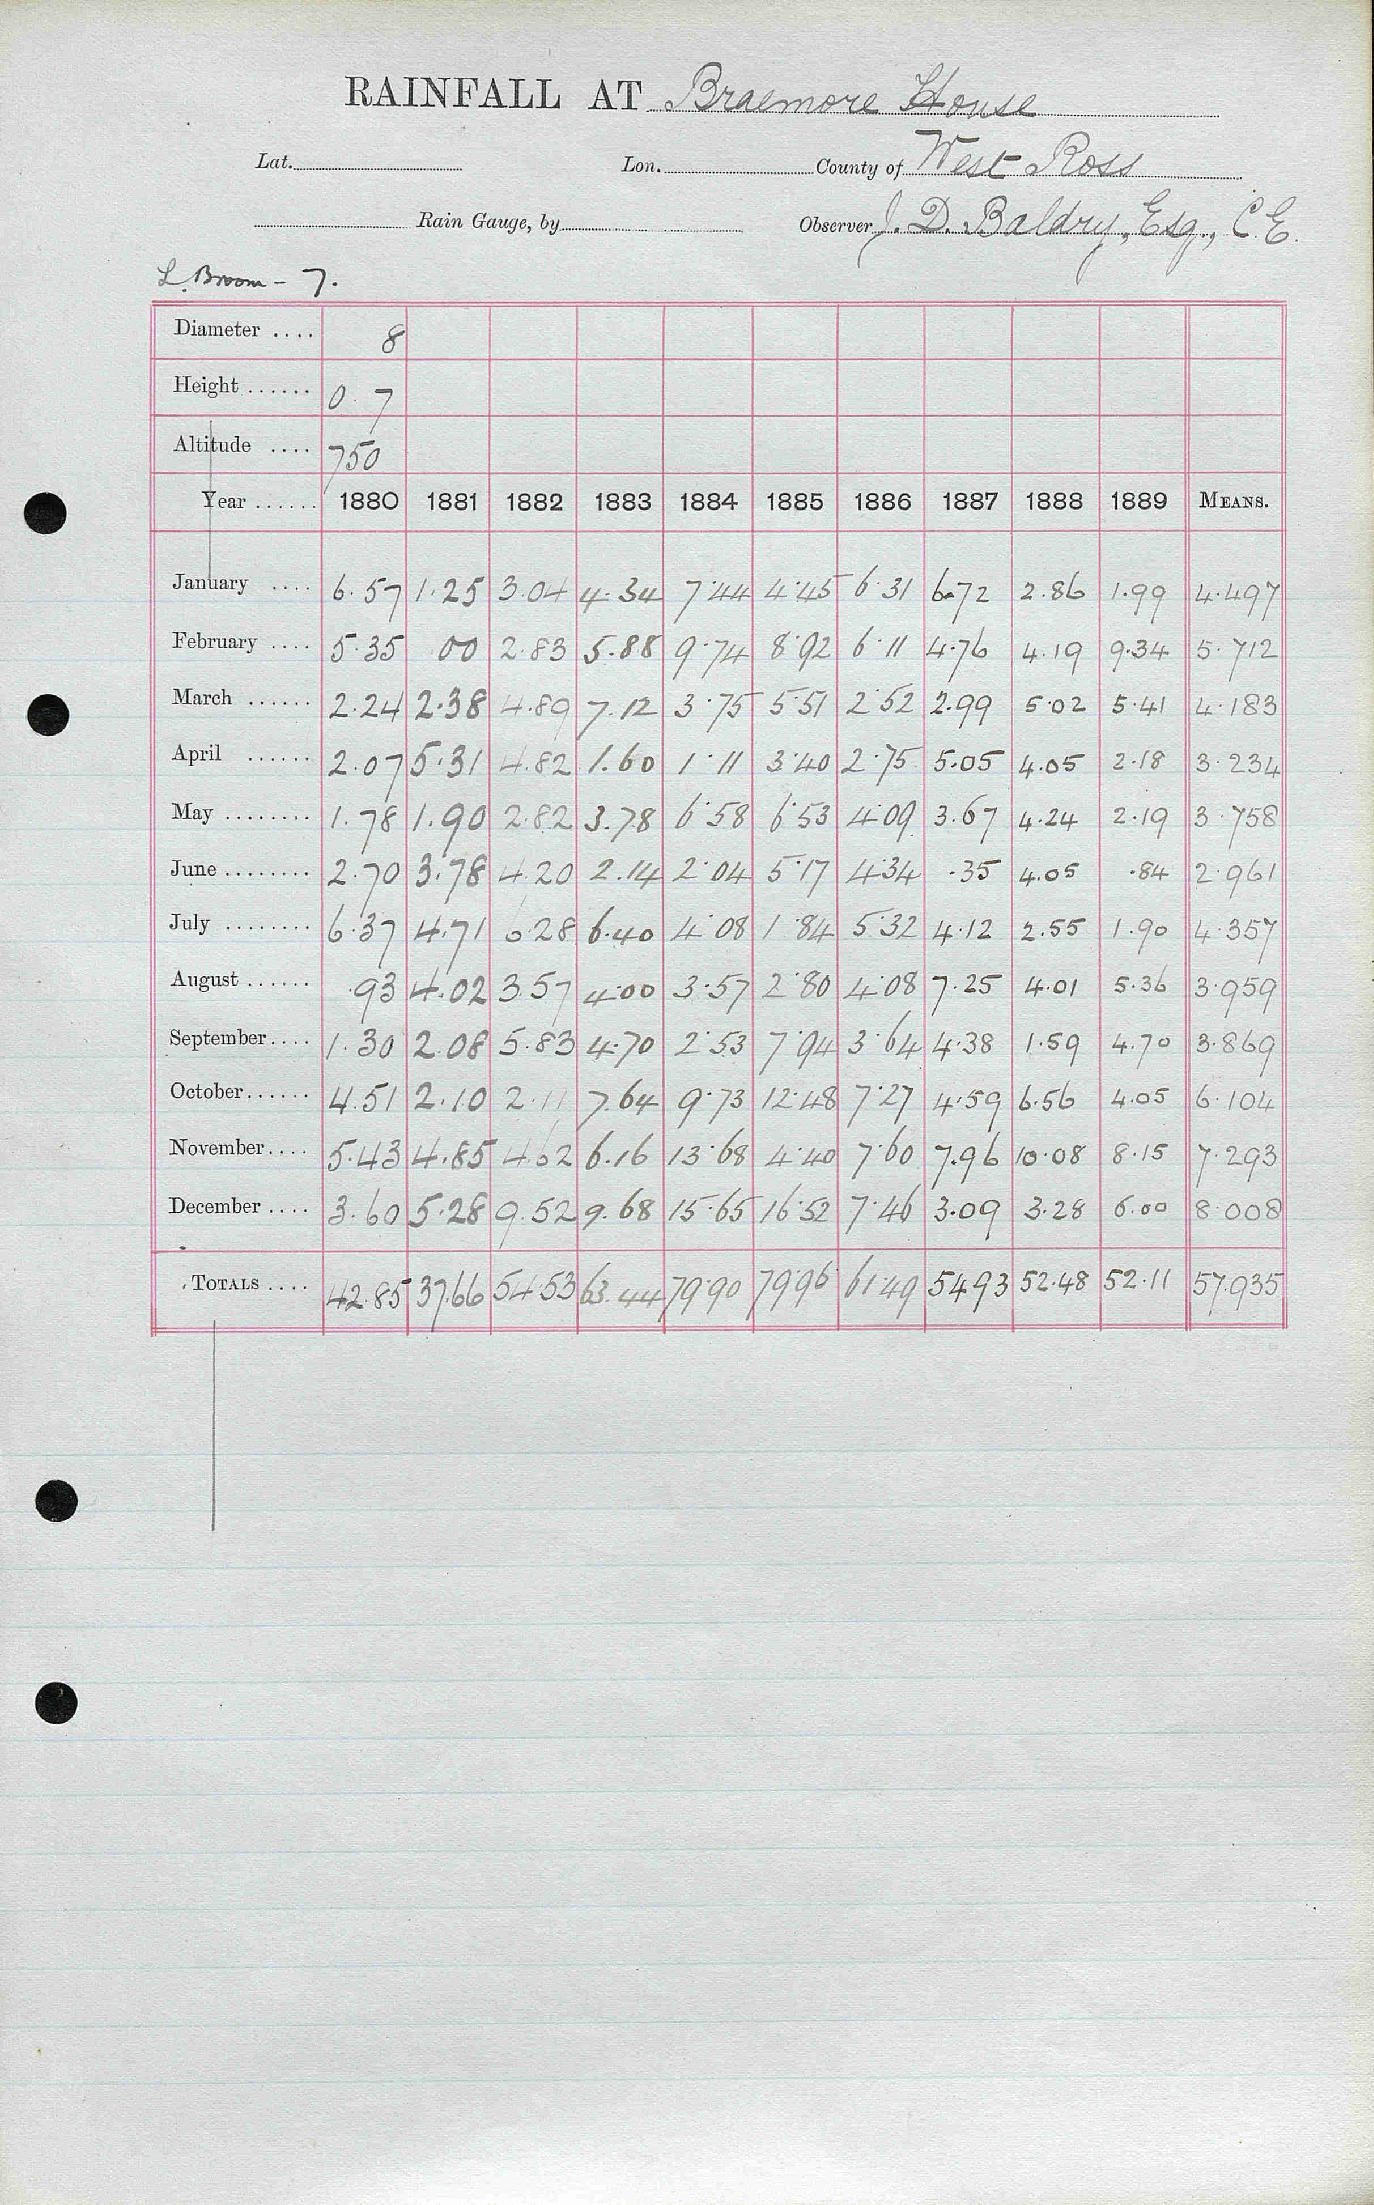 RAINFALL AT Braemore House
Lat. Lon. County of West Ross
Rain Gauge, by Observer J. D. Baldry, Esq., C.E.
L. Broom - 7.
Diameter .... 8
Height ...... 0. 7
Altitude .... 750
Year ...... 1880 1881 1882 1883 1884 1885 1886 1887 1888 1889 MEANS.
January .... 6.57 1.25 3.04 4.34 7.44 4.45 6.31 6.72 2.86 1.99 4.497
February .... 5.35 00 2.83 5.88 9.74 8.92 6.11 4.76 4.19 9.34 5.712
March ...... 2.24 2.38 4.89 7.12 3.75 5.51 2.52 2.99 5.02 5.41 4.183
April ...... 2.07 5.31 4.82 1.60 1.11 3.40 2.75 5.05 4.05 2.18 3.234
May ........ 1.78 1.90 2.82 3.78 6.58 6.53 4.09 3.67 4.24 2.19 3.758
June ........ 2.70 3.78 4.20 2.14 2.04 5.17 4.34 .35 4.05 .84 2.961
July ........ 6.37 4.71 6.28 6.40 4.08 1.84 5.32 4.12 2.55 1.90 4.357
August ...... .93 4.02 3.57 4.00 3.57 2.80 4.08 7.25 4.01 5.36 3.959
September .... 1.30 2.08 5.83 4.70 2.53 7.94 3.64 4.38 1.59 4.70 3.869
October ...... 4.51 2.10 2.11 7.64 9.73 12.48 7.27 4.59 6.56 4.05 6.104
November .... 5.43 4.85 4.62 6.16 13.68 4.40 7.60 7.96 10.08 8.15 7.293
December .... 3.60 5.28 9.52 9.68 15.65 16.52 7.46 3.09 3.28 6.00 8.008
TOTALS .... 42.85 37.66 54.53 63.44 79.90 79.96 61.49 54.93 52.48 52.11 57.935